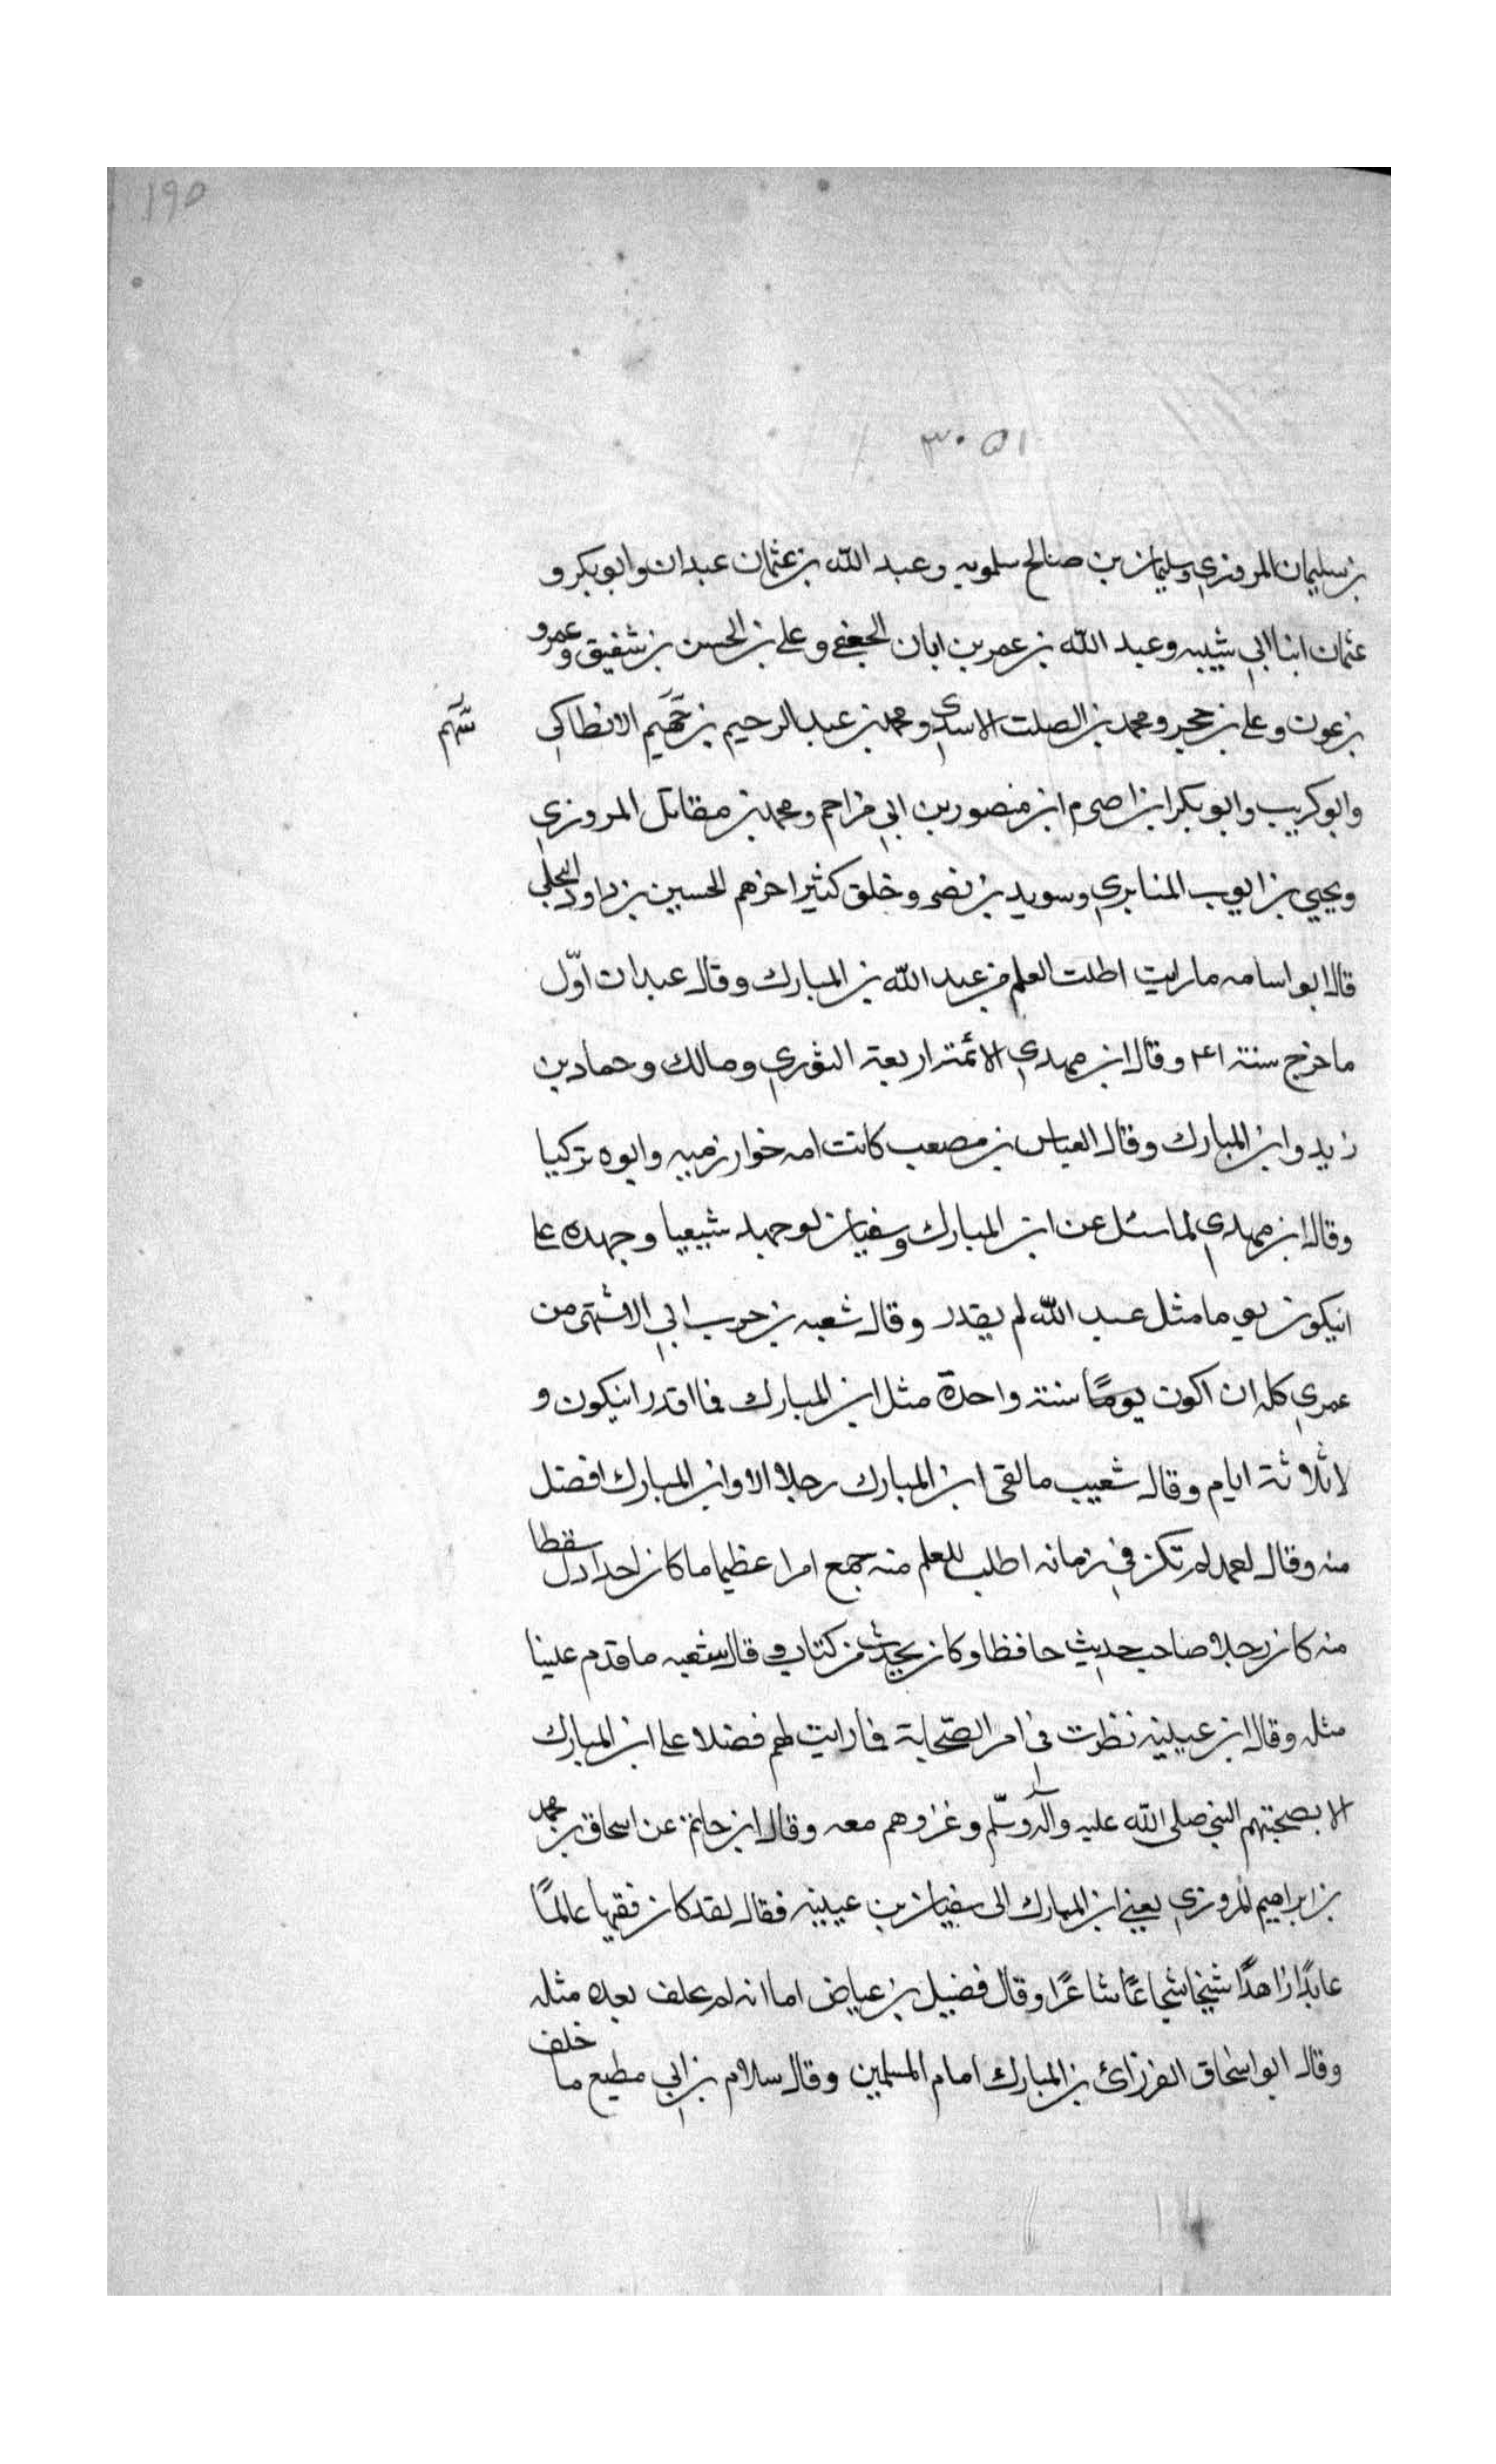 ١٩٥
٣٠٥١
بن سليمان المروزي وسليمان بن صالح سلمويه وعبد الله بن عثمان عبدان وابو بكر و
عثمان ابنا ابي شيبه وعبد الله بن عمر بن ابان الجعفي وعلي بن الحسن بن شفيق وعمرو
بن عون وعلي بن حجر ومحمد بن الصلت الاسدي ومحمد بن عبد الرحيم بن الانطاكي
وابو كريب وابو بكر ابن اصرم ابن منصور بن ابي مزاحم ومحمد بن مقاتل المروزي
ويحيي بن ايوب المنابري وسويد بن نصر وخلق كثير اخرهم الحسين بن داود البجلي
قال ابو اسامه ما رايت اطلت العلم من عبد الله بن المبارك وقال عبدان اوّل
ما خرج سنة ١٤١ وقال ابن مهدي الائمة اربعة الثوري ومالك وحماد بن
زيد وابن المبارك وقال العباس بن مصعب كانت امه خوارزميه وابوه تركيا
وقال ابن مهدي لما سئل عن ابن المبارك وسفيان لو جهد شيعيا وجهده علي
انيكون يوما مثل عبد الله لم يقدر وقال شعبه بن حرب اني الاشتهى من
عمري كله ان اكون يومًا سنة واحدة مثل ابن المبارك فما اقدر انيكون و
لا ثلاثة ايام وقال شعيب ما لقى ابن المبارك رجلا الا وابن المبارك افضل
منه وقال لعمد لم تكن في زمانه اطلب للعلم منه جمع امرا عظيما ما كان احدا دل سقطا
منه كان رجلا صاحب حديث حافظا وكان يحدث من كتاب وقال شعبه ما قدم علينا
مثله وقال ابن عيينه نظرت في امر الصّحابة فما رايت لهم فضلا علي ابن المبارك
الا بصحبتهم النبي صلى الله عليه وآله وسلّم وغزوهم معه وقال ابن حاتم عن اسحاق بن محمد
بن ابراهيم المروزي يعني ابن المبارك الى سفيان بن عيينه فقال لقد كان فقيها عالمًا
عابدًا زاهدًا شيخا شجاعًا شاعرًا وقال فضيل بن عياض اما انه لم يخلف بعده مثله
وقال ابو اسحاق الفرزائ بن المبارك امام المسلمين وقال سلام بن ابي مطيع ما خلف